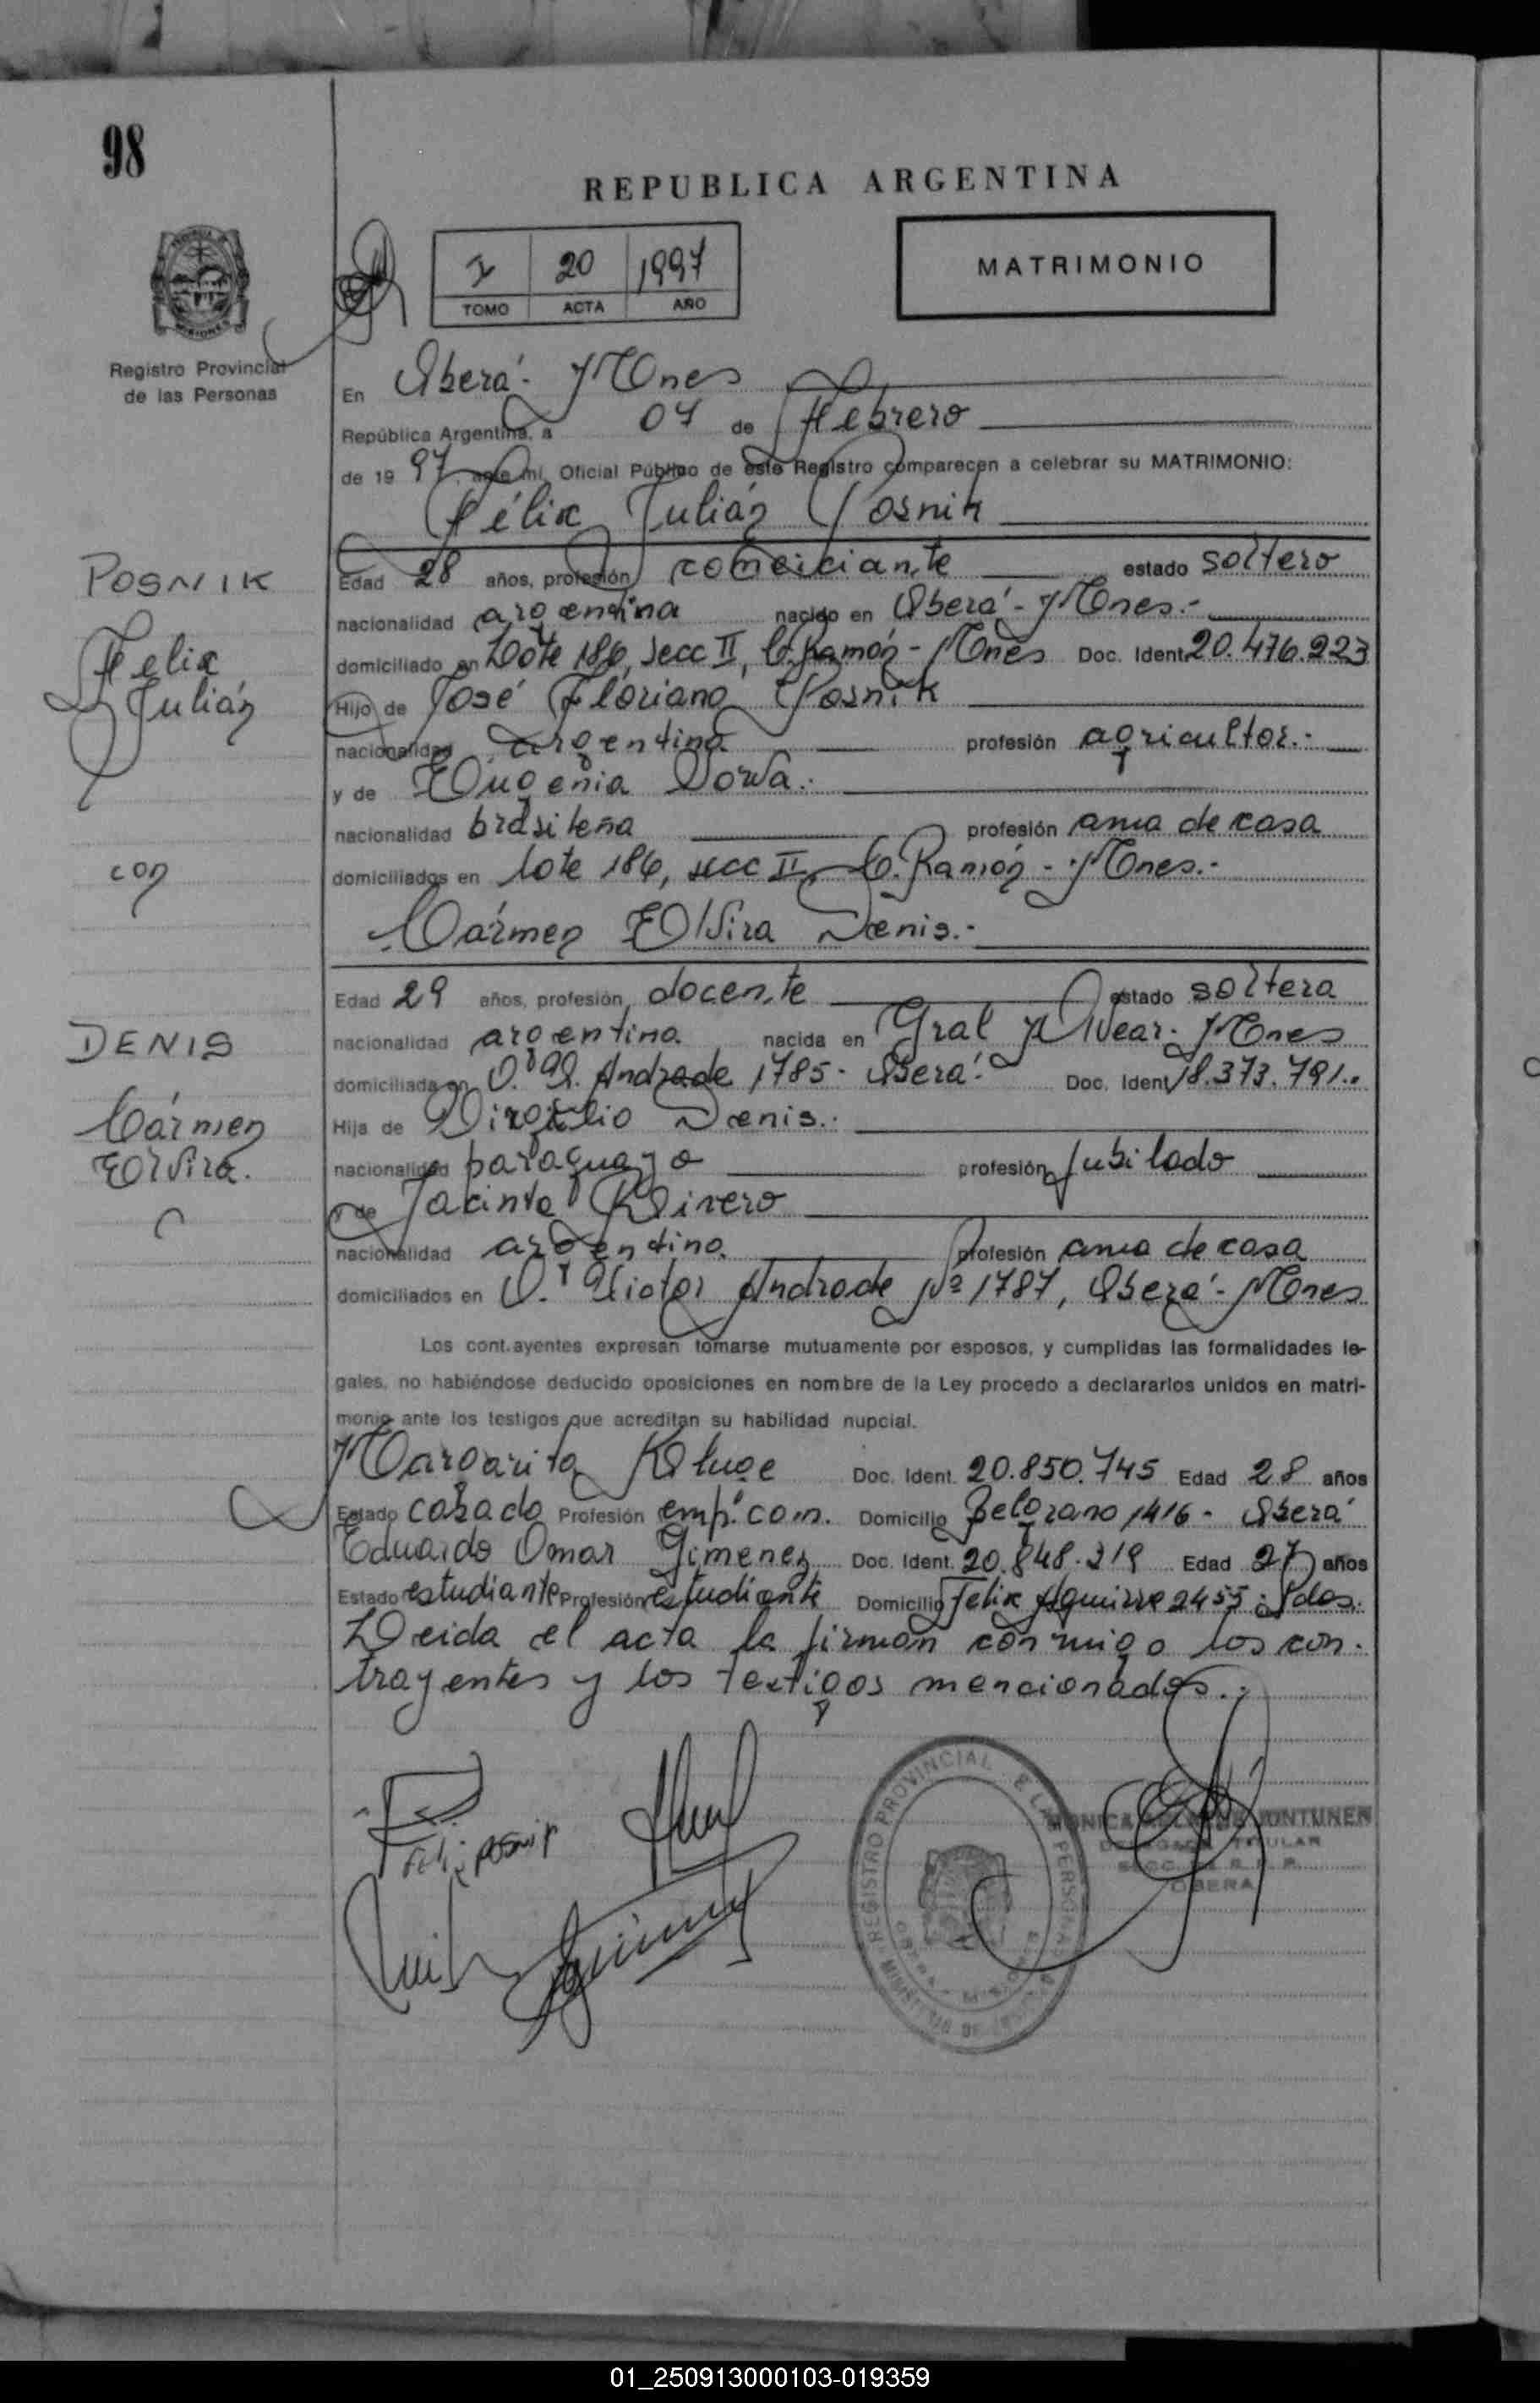 98
REPUBLICA ARGENTINA
I 20 1997
TOMO ACTA AÑO
MATRIMONIO
Registro Provincial
de las Personas
En Oberá - Mnes
República Argentina, a 07 de Febrero
de 19 97 ante mi, Oficial Público de este Registro comparecen a celebrar su MATRIMONIO:
Félix Julián Posnik
POSNIK
Felix
Julián
con
DENIS
Cármen
Elvira.
Edad 28 años, profesión comerciante estado soltero
nacionalidad argentina nacido en Oberá - Mnes.-
domiciliado en Lote 186, secc II, C. Ramón - Mnes Doc. Ident. 20.476.223
Hijo de José Floriano Posnik
nacionalidad argentina profesión agricultor.-
y de Eugenia
nacionalidad brasileña profesión ama de casa
domiciliados en lote 186, secc II, C. Ramón - Mnes.-
Cármen Elvira Denis.-
Edad 29 años, profesión docente estado soltera
nacionalidad argentina nacida en Gral Alvear - Mnes
domiciliada en O. V. Andrade 1785 - Oberá.- Doc. Ident. 18.373.791.-
Hija de Virgilio Denis.-
nacionalidad paraguaya profesión jubilado
y de Jacinta Rivero
nacionalidad argentina profesión ama de casa
domiciliados en O. Victor Andrade Nº 1787, Oberá - Mnes
Los cont.ayentes expresan tomarse mutuamente por esposos, y cumplidas las formalidades le-
gales, no habiéndose deducido oposiciones en nombre de la Ley procedo a declararlos unidos en matri-
monio ante los testigos que acreditan su habilidad nupcial.
Margarita Kluge Doc. Ident. 20.850.745 Edad 28 años
Estado casada Profesión emp. com. Domicilio Belgrano 1416 - Oberá
Eduardo Omar Gimenez Doc. Ident. 20.848.219 Edad 27 años
Estado estudiante Profesión estudiante Domicilio Felix Aguirre 2455 - Pdas.
Leida el acta la firman conmigo los con-
trayentes y los testigos mencionados.-
Feliz Posnik
REGISTRO PROVINCIAL DE LAS PERSONAS
MONICA JONTUNEN
TITULAR
OBERA
01_250913000103-019359